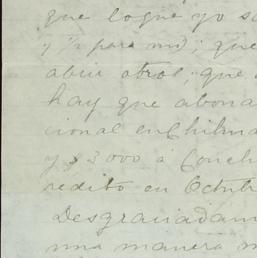 que logre yo sa
y ½ para mi; que
abrir otro; que
hay que abona
cional en Chihua
y $3000 á Conch
rédito en Octub
Desgraciadam
una manera m